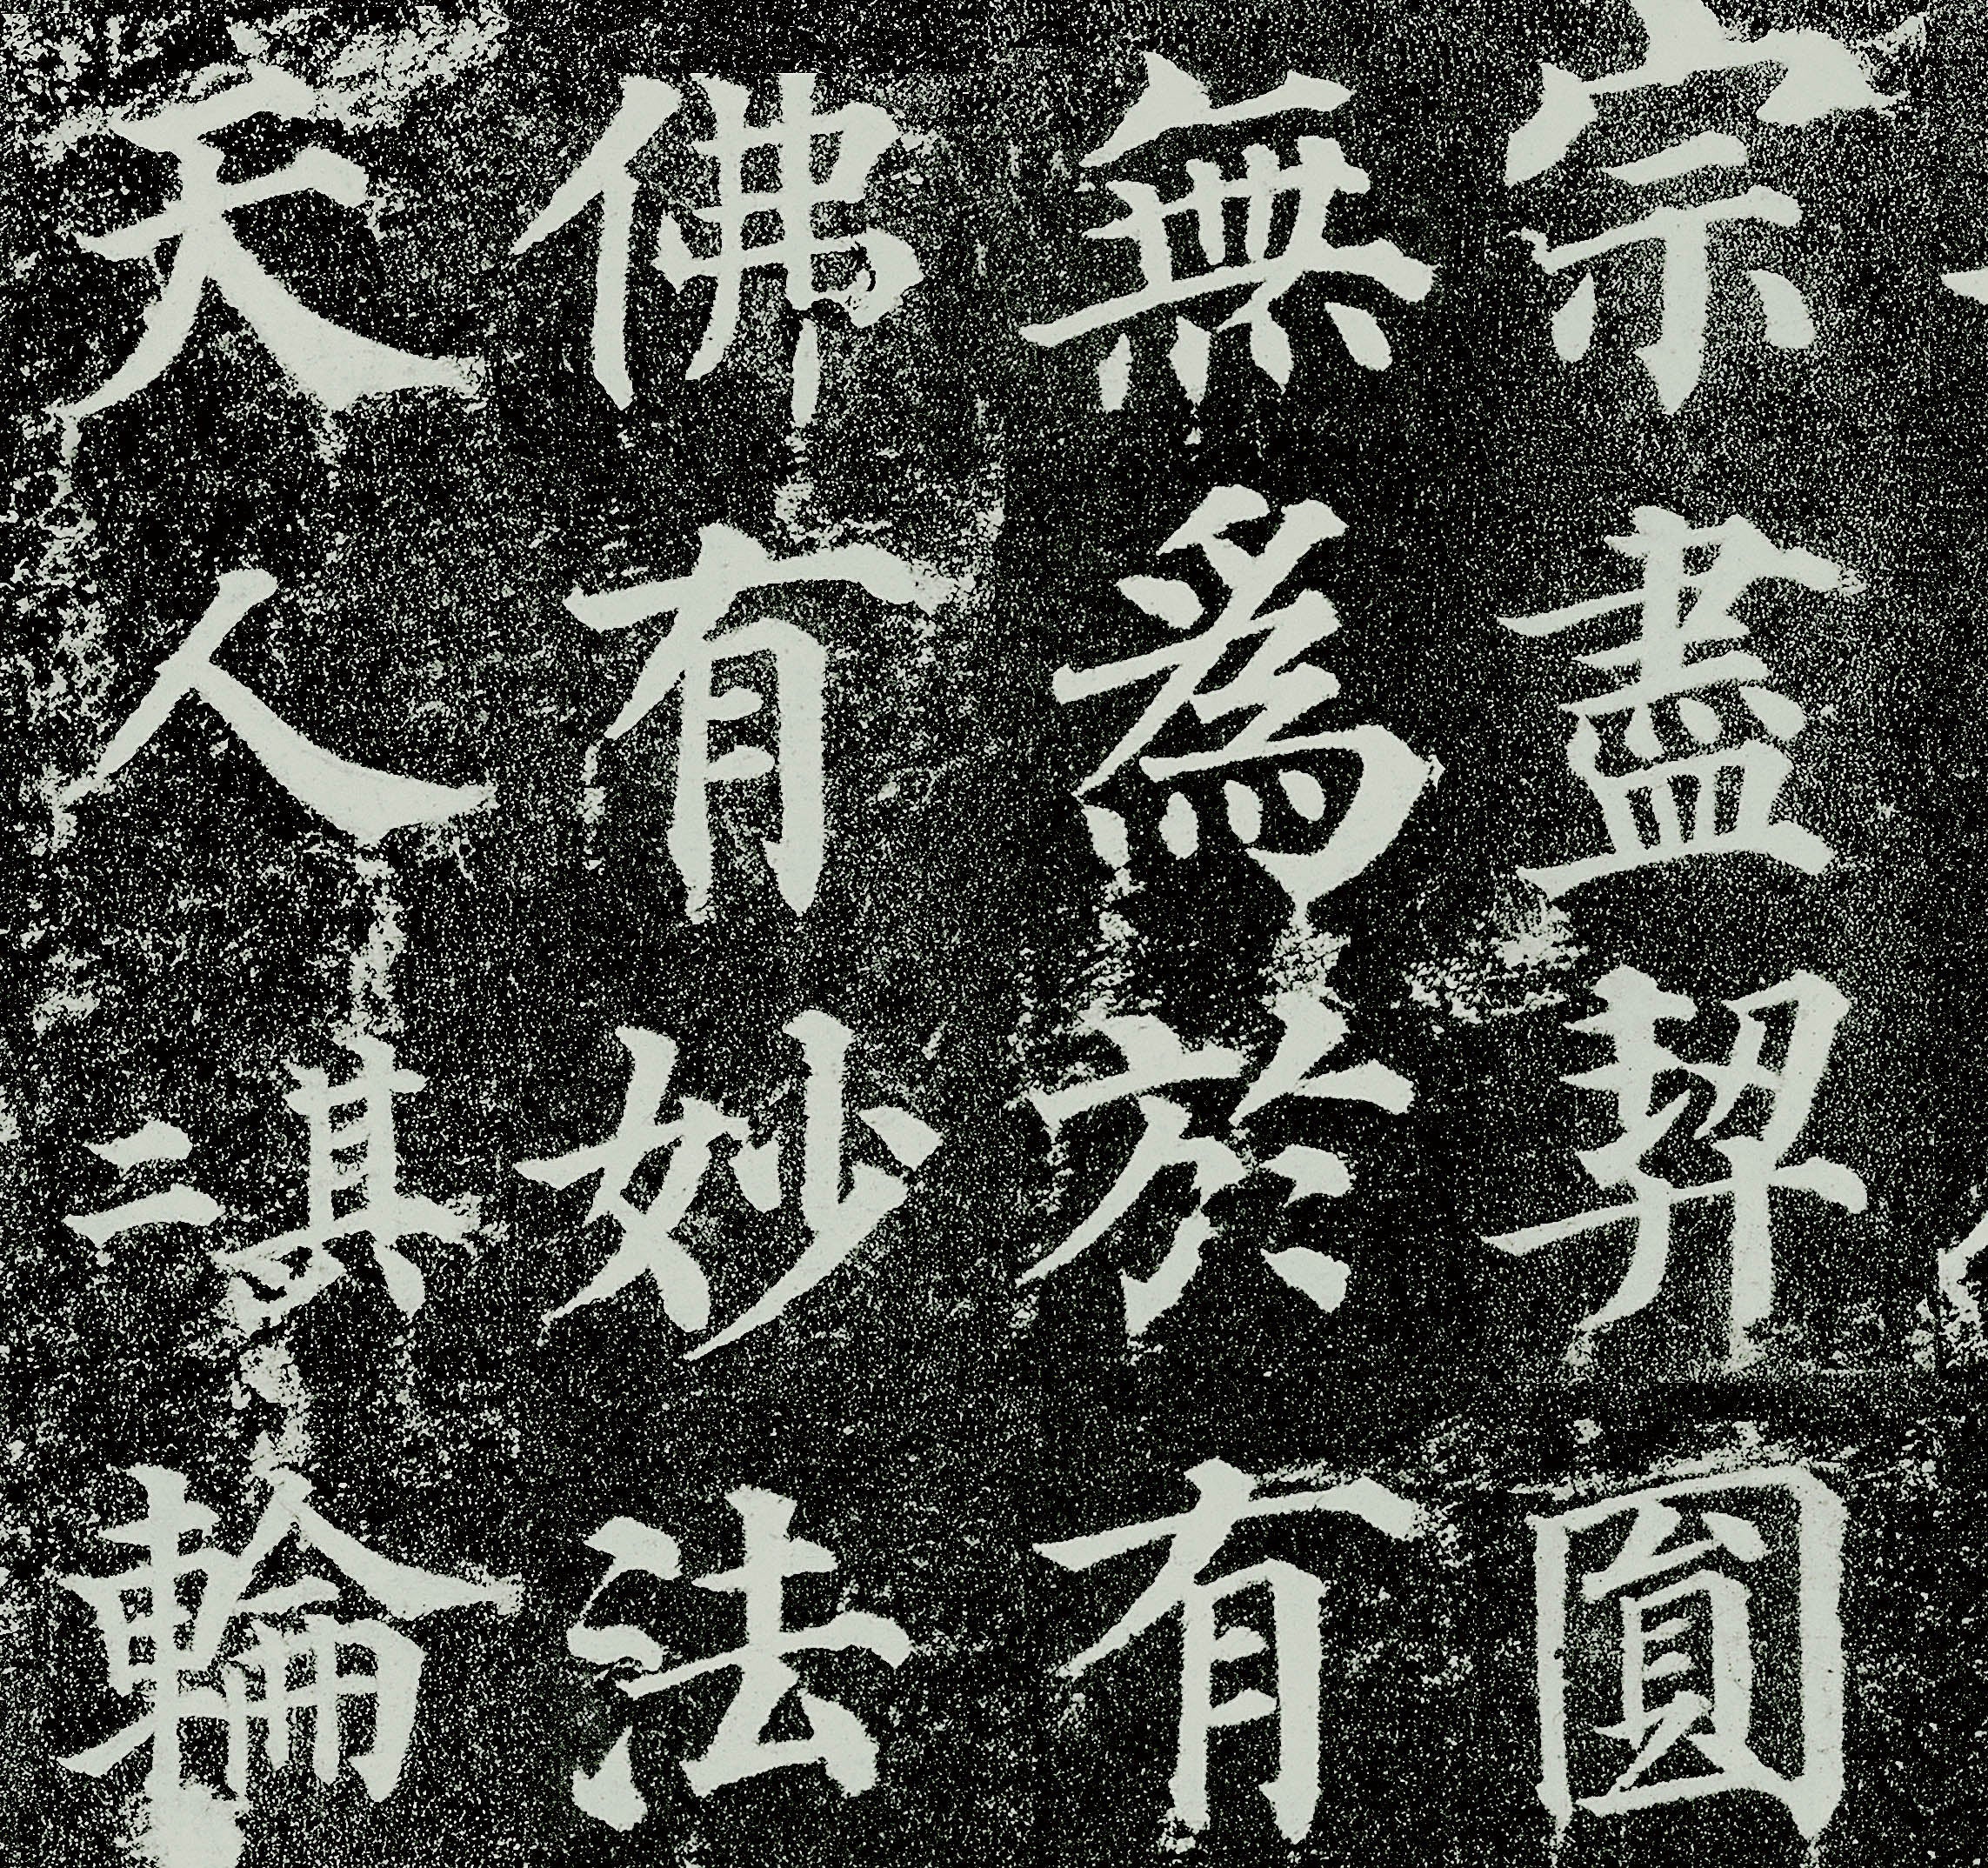 宗盡契圓
無爲於有
佛有妙法
天人輪